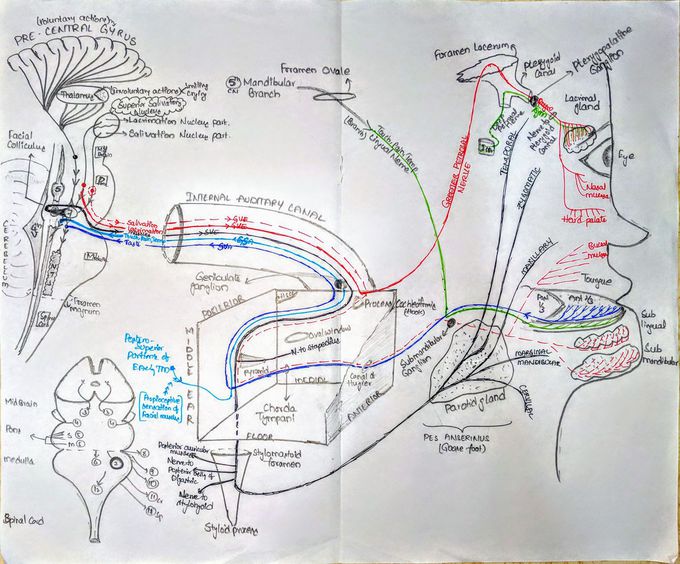 (voluntary actions)
PRE-CENTRAL GYRUS
Thalamus
(involuntary actions)
Smiling
Crying
Superior Salivatory
Nucleus
Lacrimation Nucleus part.
Salivation Nucleus part.
Facial
Colliculus
CEREBELLUM
Foramen
magnum
Foramen Ovale
5th
CN
Mandibular
Branch
(Branch) Lingual Nerve
INTERNAL AUDITORY CANAL
Salivation
Lacrimation
Taste
GVE
GVE
SVE
GSA
Geniculate
ganglion
POSTERIOR
MIDDLE EAR
Process
Cochleariformis
(Hook)
Oval window
N. to stapedius
Pyramid
MEDIAL
Canal of
Hugier
ANTERIOR
Chorda
Tympani
FLOOR
Postero-
Superior
Portions of
EAC & TM
Proprioceptive
sensation of
Facial muscles
Posterior auricular
Nerve to
Posterior Belly of
Digastric
Nerve to
stylohyoid
Stylomastoid
Foramen
Styloid process
Mid Brain
Pons
medulla
Spinal Cord
Foramen lacerum
Pterygoid
Canal
Pterygopalatine
Ganglion
GREATER PETROSAL
NERVE
Deep Petrosal
Nerve
Nerve to
Pterygoid
Canal
Lacrimal
gland
Eye
Nasal
mucosa
Hard palate
TEMPORAL
ZYGOMATIC
MAXILLARY
Buccal
Tongue
Post 1/3
Ant 2/3
Sub
lingual
Sub
mandibular
Submandibular
Ganglion
MARGINAL
MANDIBULAR
CERVICAL
Parotid gland
PES ANSERINUS
(Goose-foot)